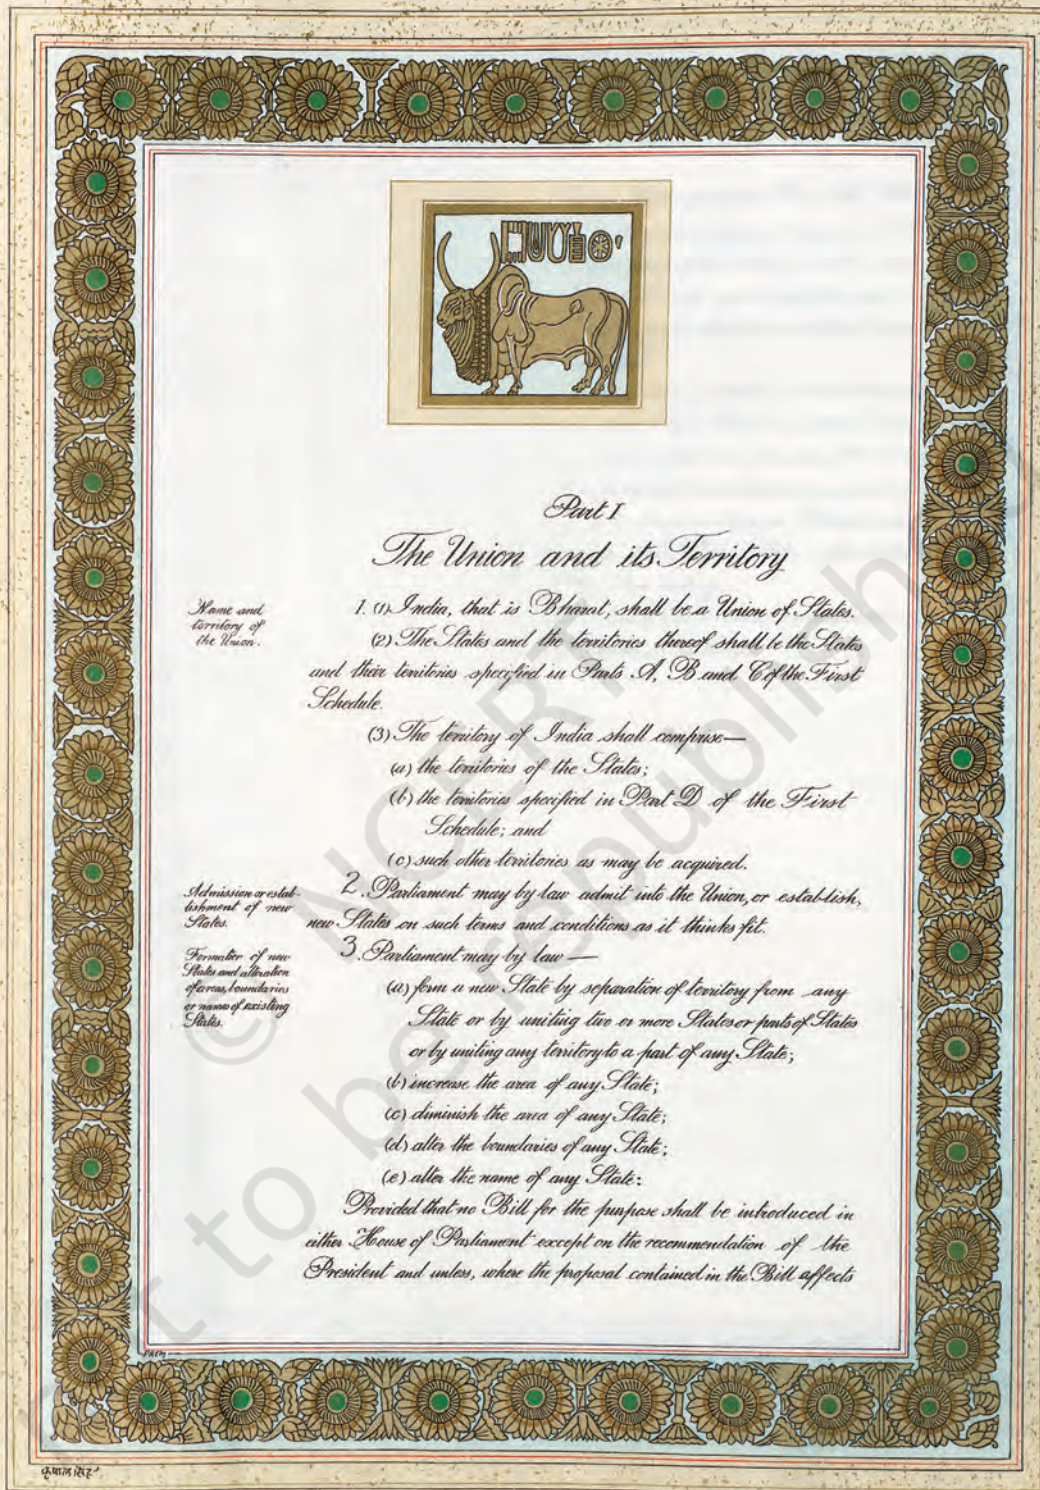 Part I
The Union and its Territory
Name and
territory of
the Union.
1. (1) India, that is Bharat, shall be a Union of States.
(2) The States and the territories thereof shall be the States
and their territories specified in Parts A, B and C of the First
Schedule.
(3) The territory of India shall comprise—
(a) the territories of the States;
(b) the territories specified in Part D of the First
Schedule; and
(c) such other territories as may be acquired.
Admission or estab-
lishment of new
States.
2. Parliament may by law admit into the Union, or establish,
new States on such terms and conditions as it thinks fit.
Formation of new
States and alteration
of areas, boundaries
or names of existing
States.
3. Parliament may by law —
(a) form a new State by separation of territory from any
State or by uniting two or more States or parts of States
or by uniting any territory to a part of any State;
(b) increase the area of any State;
(c) diminish the area of any State;
(d) alter the boundaries of any State;
(e) alter the name of any State:
Provided that no Bill for the purpose shall be introduced in
either House of Parliament except on the recommendation of the
President and unless, where the proposal contained in the Bill affects
कृपाल सिंह
© NCERT
not to be republished